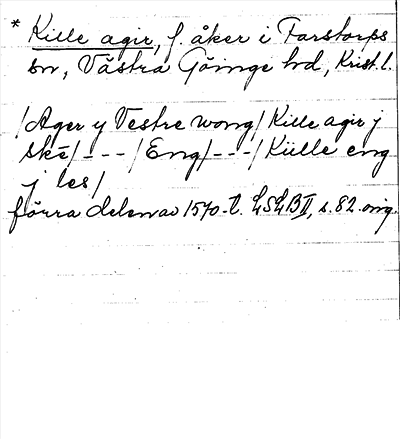 * Kille agir, f. åker i Farstorps
sn, Västra Göinge hd, Krist. l.
/Ager y Vestre wong/ Kille agir j
skē/ - - - /Eng/ - - - /Kiille eng
j les/
förra delen av 1570-t. LSLB II, s. 82. orig.